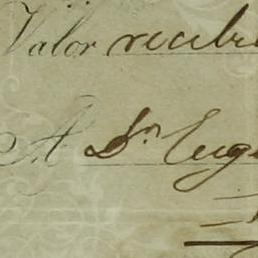 Valor recibi
A Dn Euge